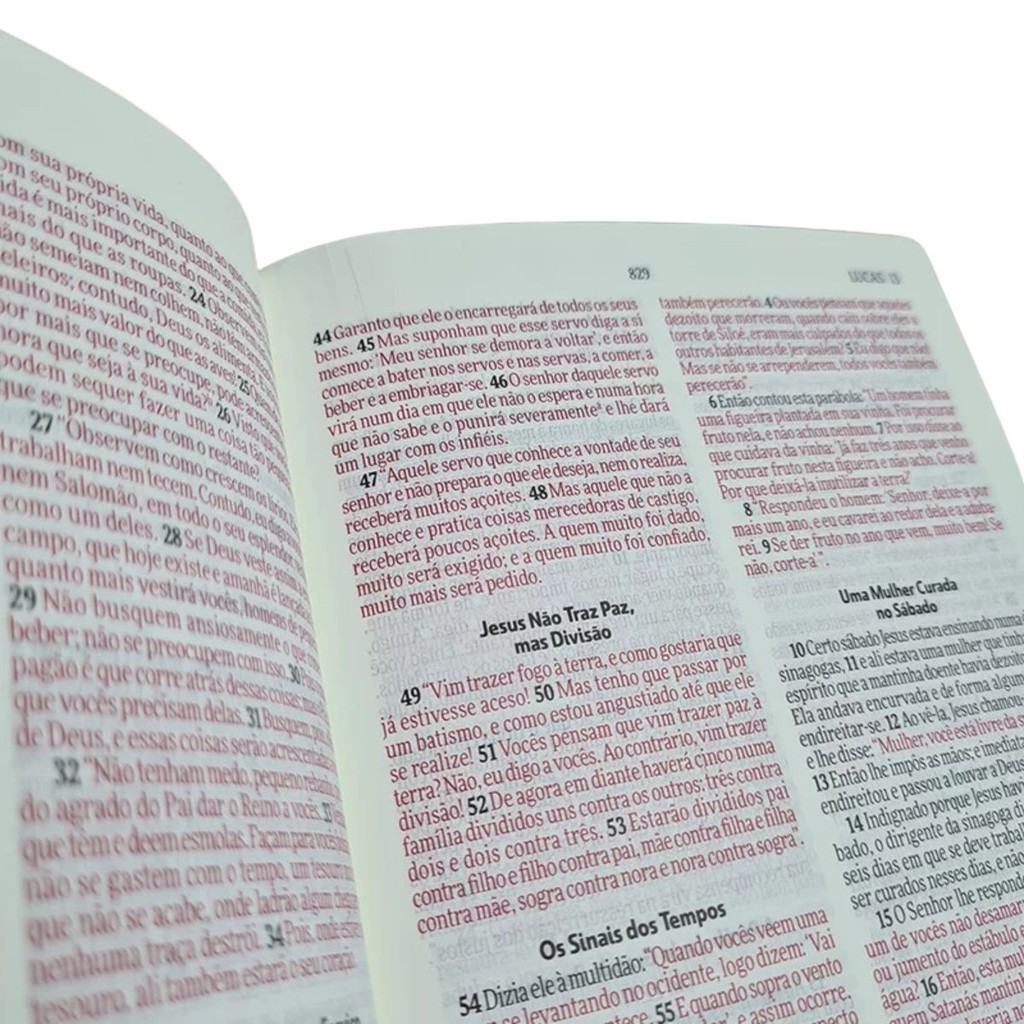 om sua própria vida, quanto ao que
om seu próprio corpo, quanto ao que
ida é mais importante do que a comida,
mais do que as roupas. 24 Observem
ão semeiam nem colhem, não têm
eleiros; contudo, Deus os alimenta.
muito mais valor do que as aves! 25
por mais que se preocupe, pode
hora que seja à sua vida? 26 Visto que
podem sequer fazer uma coisa tão
que se preocupar com o restante?
27 "Observem como crescem os lírios.
trabalham nem tecem. Contudo, eu digo
nem Salomão, em todo o seu esplendor,
como um deles. 28 Se Deus veste assim
campo, que hoje existe e amanhã é lançada
quanto mais vestirá vocês, homens de
29 Não busquem ansiosamente o que
beber; não se preocupem com isso. 30
pagão é que corre atrás dessas coisas; mas o
que vocês precisam delas. 31 Busquem, pois,
de Deus, e essas coisas serão acrescentadas
32 "Não tenham medo, pequeno rebanho,
do agrado do Pai dar o Reino a vocês. 33
que têm e deem esmolas. Façam para vocês
não se gastem com o tempo, um tesouro
que não se acabe, onde ladrão algum chega
nenhuma traça destrói. 34 Pois, onde
tesouro, ali também estará o seu coração.
829
LUCAS 13
44 Garanto que ele o encarregará de todos os seus
bens. 45 Mas suponham que esse servo diga a si
mesmo: 'Meu senhor se demora a voltar', e então
comece a bater nos servos e nas servas, a comer, a
beber e a embriagar-se. 46 O senhor daquele servo
virá num dia em que ele não o espera e numa hora
que não sabe e o punirá severamente e lhe dará
um lugar com os infiéis.
47 "Aquele servo que conhece a vontade de seu
senhor e não prepara o que ele deseja, nem o realiza,
receberá muitos açoites. 48 Mas aquele que não a
conhece e pratica coisas merecedoras de castigo,
receberá poucos açoites. A quem muito foi dado,
muito será exigido; e a quem muito foi confiado,
muito mais será pedido.
Jesus Não Traz Paz,
mas Divisão
49 "Vim trazer fogo à terra, e como gostaria que
já estivesse aceso! 50 Mas tenho que passar por
um batismo, e como estou angustiado até que ele
se realize! 51 Vocês pensam que vim trazer paz à
terra? Não, eu digo a vocês. Ao contrário, vim trazer
divisão! 52 De agora em diante haverá cinco numa
família divididos uns contra os outros: três contra
dois e dois contra três. 53 Estarão divididos pai
contra filho e filho contra pai, mãe contra filha e filha
contra mãe, sogra contra nora e nora contra sogra".
Os Sinais dos Tempos
54 Dizia ele à multidão: "Quando vocês veem uma
se levantando no ocidente, logo dizem: 'Vai
55 E quando sopra o vento
e assim ocorre.
também perecerão. 4 Ou vocês pensam que aqueles
dezoito que morreram, quando caiu sobre eles a
torre de Siloé, eram mais culpados do que todos os
outros habitantes de Jerusalém? 5 Eu digo que não!
Mas se não se arrependerem, todos vocês também
perecerão".
6 Então contou esta parábola: "Um homem tinha
uma figueira plantada em sua vinha. Foi procurar
fruto nela, e não achou nenhum. 7 Por isso disse ao
que cuidava da vinha: 'Já faz três anos que venho
procurar fruto nesta figueira e não acho. Corte-a!
Por que deixá-la inutilizar a terra?'
8 "Respondeu o homem: 'Senhor, deixe-a por
mais um ano, e eu cavarei ao redor dela e a aduba-
rei. 9 Se der fruto no ano que vem, muito bem! Se
não, corte-a' ".
Uma Mulher Curada
no Sábado
10 Certo sábado Jesus estava ensinando numa
sinagogas, 11 e ali estava uma mulher que tinha
espírito que a mantinha doente havia dezoito
Ela andava encurvada e de forma alguma
endireitar-se. 12 Ao vê-la, Jesus chamou
e lhe disse: "Mulher, você está livre da s
13 Então lhe impôs as mãos; e imediata
endireitou e passou a louvar a Deus
14 Indignado porque Jesus hav
bado, o dirigente da sinagoga di
seis dias em que se deve trabal
ser curados nesses dias, e não
15 O Senhor lhe respond
um de vocês não desamar
ou jumento do estábulo e
água? 16 Então, esta mul
quem Satanás mantin